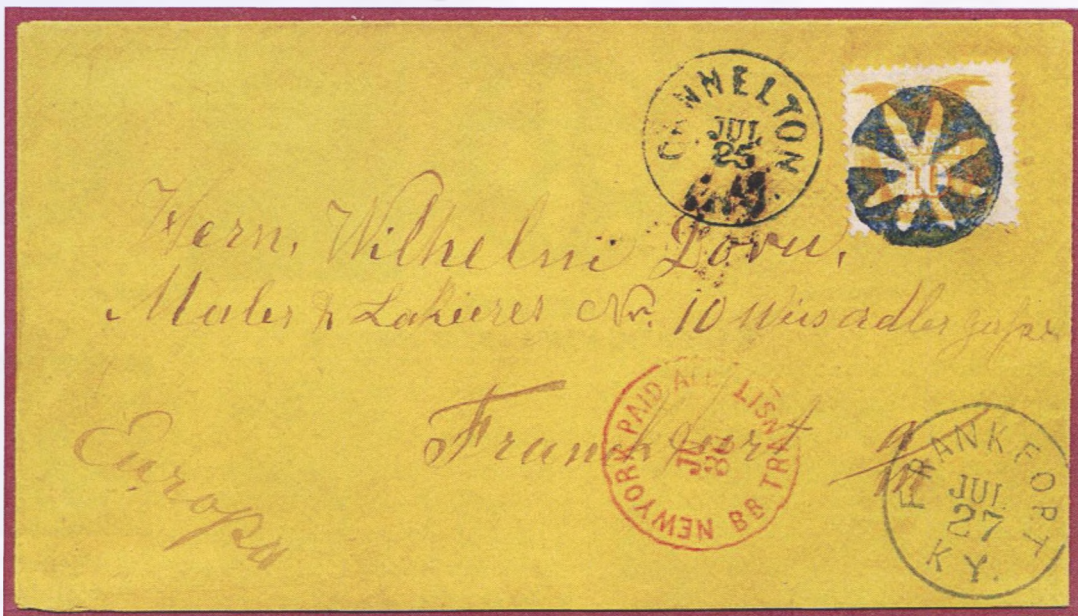 CANNELTON
JUL
25
10
Hern. Wilhelm Dorn.
Maler & Lakierer Nr. 10 Weisadler gasse
Frankfort a/M
Europa
NEW YORK PAID ALL BR TRANSIT
JUL
FRANKFORT
JUL
27
KY.